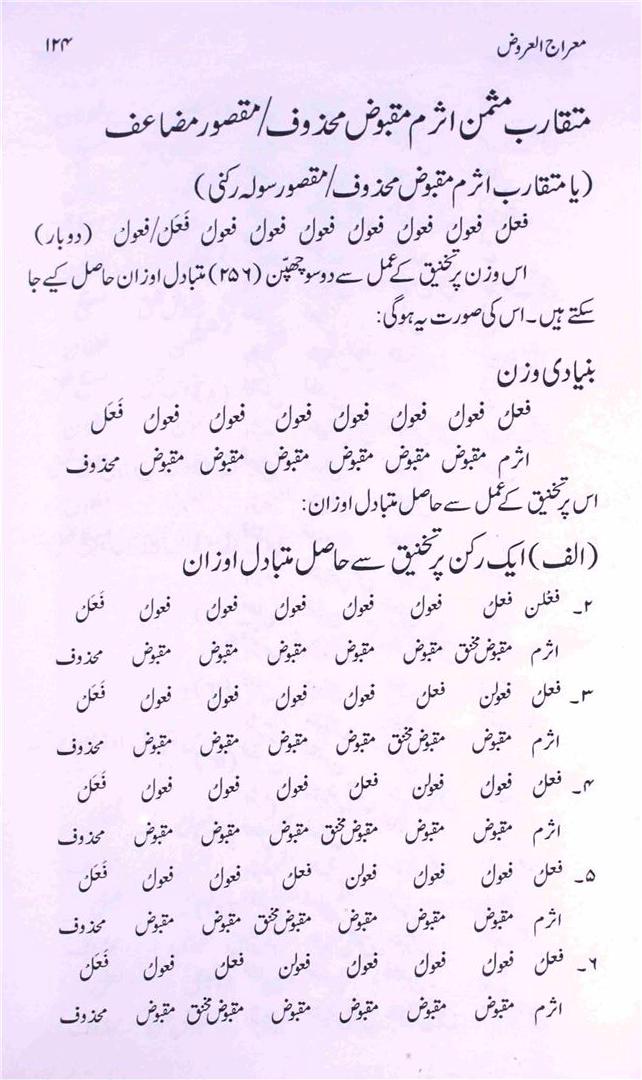 معراج العروض ۱۲۴
متقارب مثمن اثرم مقبوض محذوف/مقصور مضاعف
(یا متقارب اثرم مقبوض محذوف/مقصور سولہ رکنی)
فعلُ فعولُ فعولُ فعولُ فعولُ فعولُ فعولُ فَعَل/فعولُ (دوبار)
اس وزن پر تخنیق کے عمل سے دو سو چھپّن (۲۵۶) متبادل اوزان حاصل کیے جا
سکتے ہیں۔ اس کی صورت یہ ہوگی:
بنیادی وزن
فعلُ فعولُ فعولُ فعولُ فعولُ فعولُ فعولُ فَعَل
اثرم مقبوض مقبوض مقبوض مقبوض مقبوض مقبوض محذوف
اس پر تخنیق کے عمل سے حاصل متبادل اوزان:
(الف) ایک رکن پر تخنیق سے حاصل متبادل اوزان
۲۔ فعْلن فعلُ فعولُ فعولُ فعولُ فعولُ فعولُ فَعَل
اثرم مقبوض مخنق مقبوض مقبوض مقبوض مقبوض مقبوض محذوف
۳۔ فعلُ فعولن فعلُ فعولُ فعولُ فعولُ فعولُ فَعَل
اثرم مقبوض مقبوض مخنق مقبوض مقبوض مقبوض مقبوض محذوف
۴۔ فعلُ فعولُ فعولن فعلُ فعولُ فعولُ فعولُ فَعَل
اثرم مقبوض مقبوض مقبوض مخنق مقبوض مقبوض مقبوض محذوف
۵۔ فعلُ فعولُ فعولُ فعولن فعلُ فعولُ فعولُ فَعَل
اثرم مقبوض مقبوض مقبوض مقبوض مخنق مقبوض مقبوض محذوف
۶۔ فعلُ فعولُ فعولُ فعولُ فعولن فعلُ فعولُ فَعَل
اثرم مقبوض مقبوض مقبوض مقبوض مقبوض مخنق مقبوض محذوف